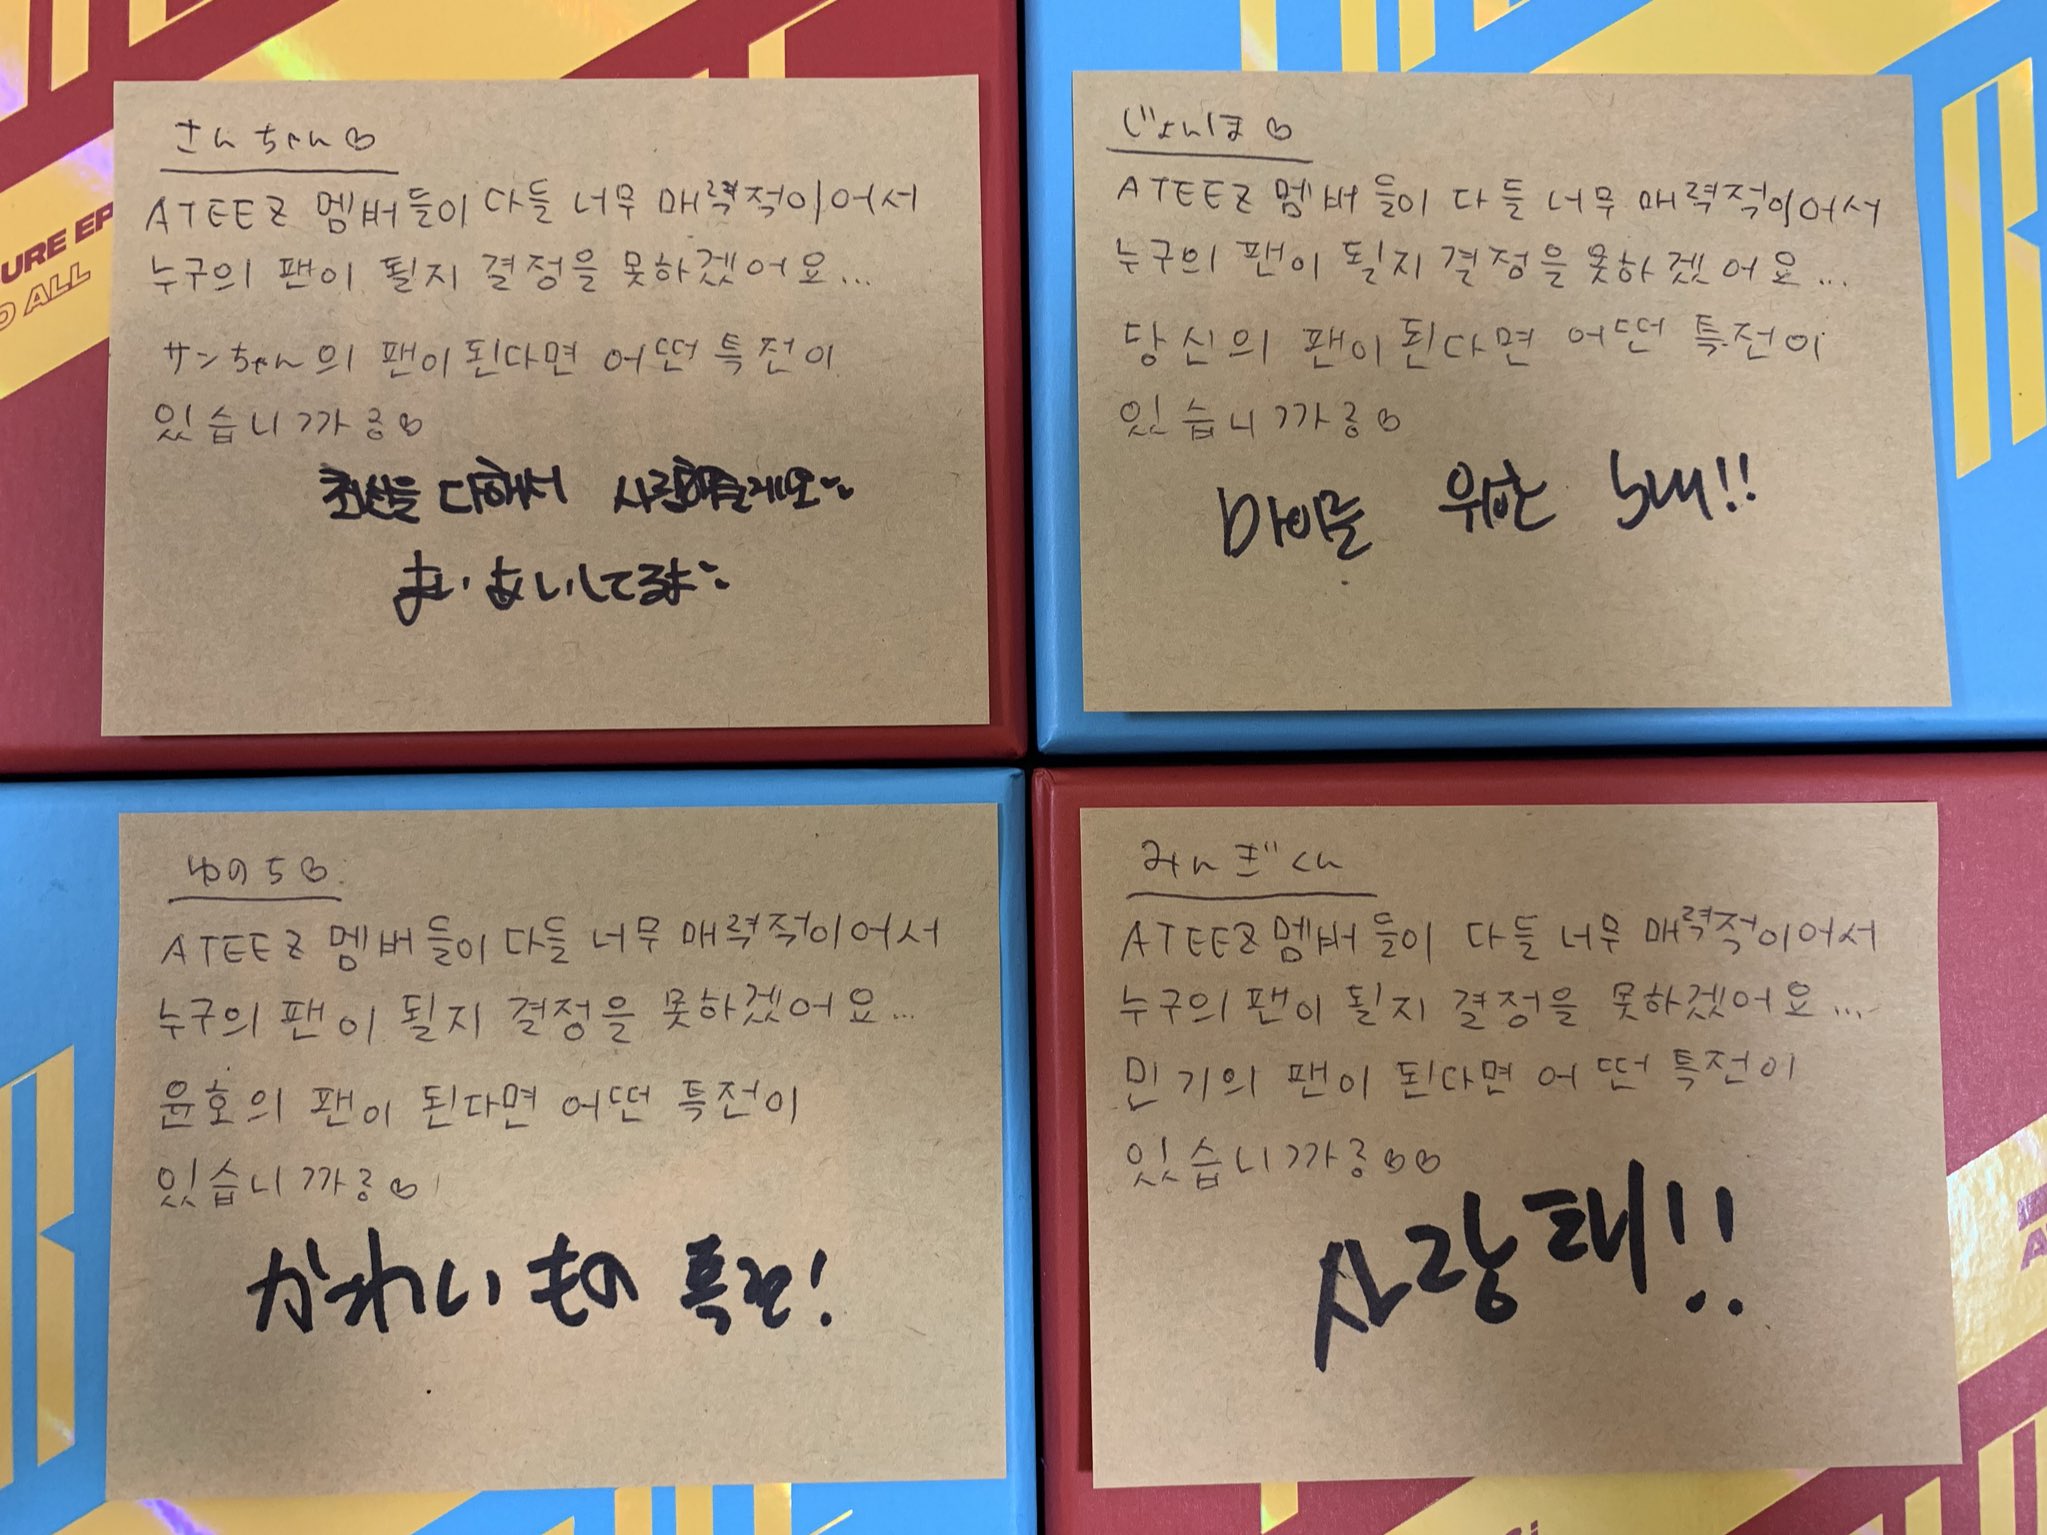 URE EP
O ALL
さんちゃん♡
ATEEZ 멤버들이 다들 너무 매력적이어서
누구의 팬이 될지 결정을 못하겠어요...
サンちゃん의 팬이 된다면 어떤 특전이
있습니까?♡
최선을 다해서 사랑해줄게요
まい あいしてるよ
じょんほ♡
ATEEZ 멤버들이 다들 너무 매력적이어서
누구의 팬이 될지 결정을 못하겠어요...
당신의 팬이 된다면 어떤 특전이
있습니까?♡
마이를 위한 노래!!
ゆのち♡
ATEEZ 멤버들이 다들 너무 매력적이어서
누구의 팬이 될지 결정을 못하겠어요...
윤호의 팬이 된다면 어떤 특전이
있습니까?♡
かわいいもの 특전!
みんぎくん
ATEEZ 멤버들이 다들 너무 매력적이어서
누구의 팬이 될지 결정을 못하겠어요...
민기의 팬이 된다면 어떤 특전이
있습니까?♡♡
사랑해!!